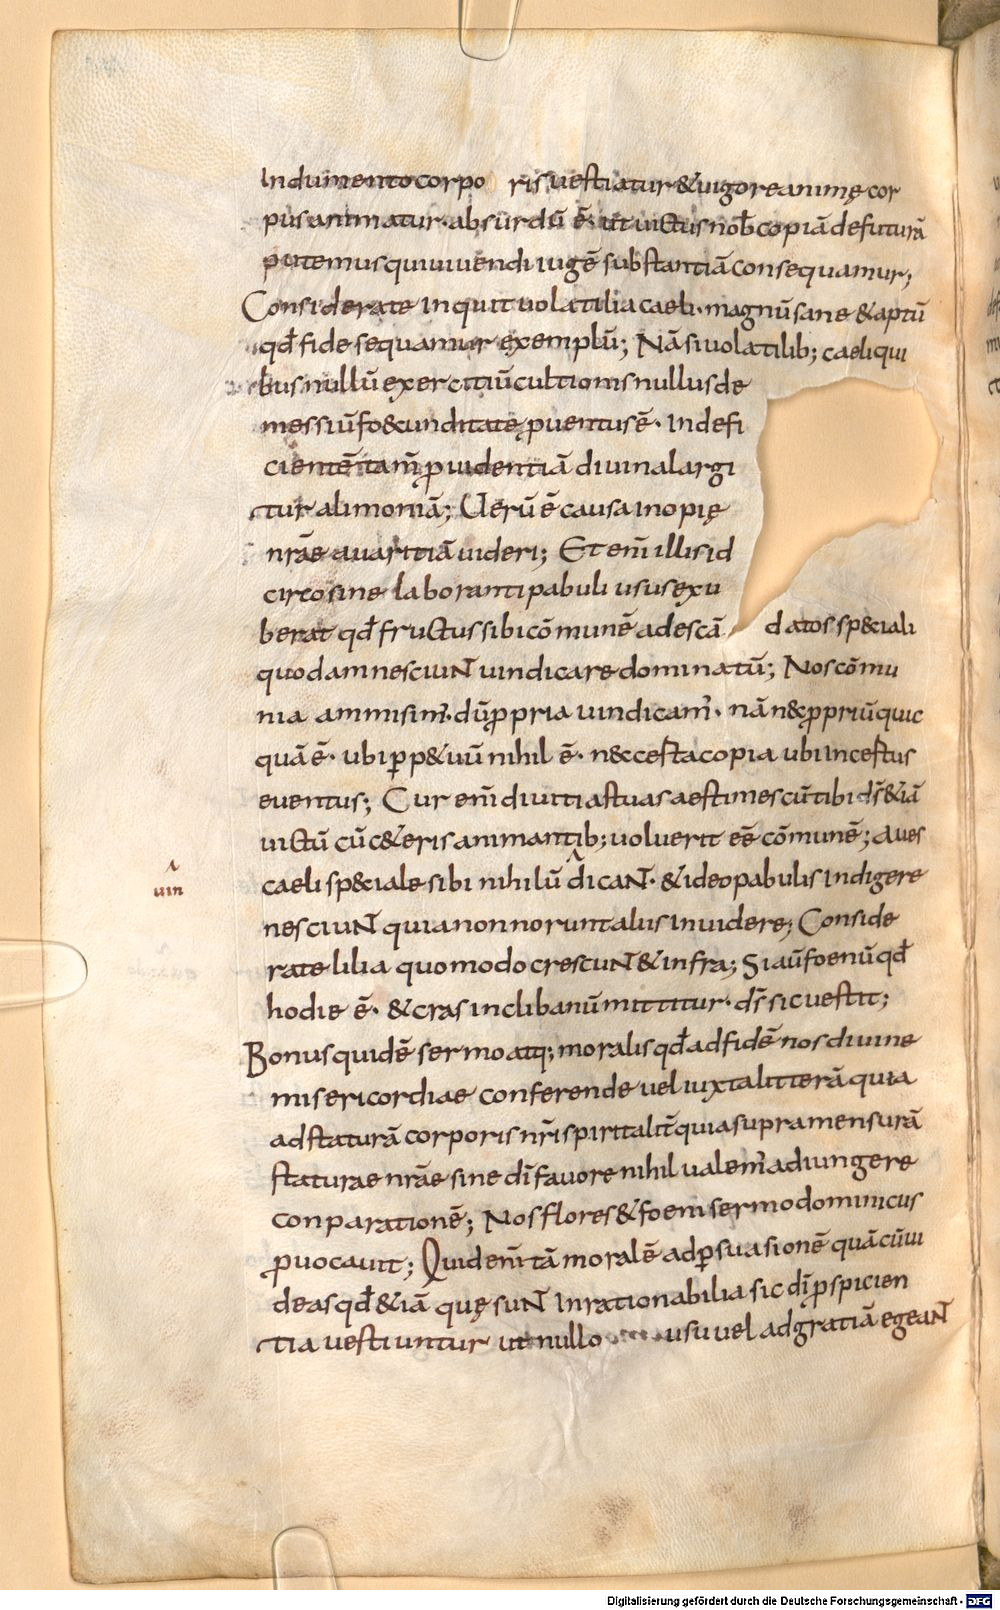 Indumento corpo ris uestiatur & uigore animę cor
pus animatur· absurdū ē· ut uictus nob̄ copiā defuturā
putemus qui uiuendi iugē substantiā consequamur;
Considerate inquit uolatilia caeli· magnū sane & aptū
qd̄ fide sequamur exemplū; Nā si uolatilib; caeli qui
bus nullū exercitiū cultionis nullus de
messiū fo&cunditate ꝓuentus ē· Indefi
cientē tam̄ ꝓuidentiā diuina largi
tur alimoniā; Uerū ē causa inopię
nr̄ae auaritiā uideri; Et enī illis id
circo sine laboranti pabuli usus exu
berat qd̄ fructus sibi cōmunē ad escā datos sp&iali
quodam nesciuNT uindicare dominatū; Nos cōmu
nia ammisim̄· dū ꝓpria uindicam̄· nā n& ꝓpriū quic
quā ē· ubi ꝑp&uū nihil ē· n& cesta copia ubi incestus
euentus; Cur enī diuitias tuas aestimes cū tibi ds̄ &iā
uictū cū c&eris animantib; uoluerit eē cōmunē; Aues
uin caeli sp&iale sibi nihilū dicaNT· & ideo pabulis indigere
nesciuNT quia non norunt aliis inuidere; Conside
rate lilia quomodo crescuNT & infra; Si aū foenū qd̄
hodie ē· & cras in clibanū mittitur· ds̄ sic uestit;
Bonus quidē sermo atq; moralis qd̄ ad fidē nos diuine
misericordiae conferende uel iuxta litterā quia
ad staturā corporis nr̄i spiritalit̄ quia supra mensurā
staturae nr̄ae sine dī fauore nihil ualem̄ adiungere
conparationē; Nos flores & foeni sermo dominicus
ꝓuocauit; Quid enī tā moralē ad ꝑsuasionē quā cū ui
deas qd̄ &iā quę suNT Inrationabilia sic dī ꝓspicien
tia uestiuntur ut nullo usu uel ad gratiā egeaNT
Digitalisierung gefördert durch die Deutsche Forschungsgemeinschaft - DFG